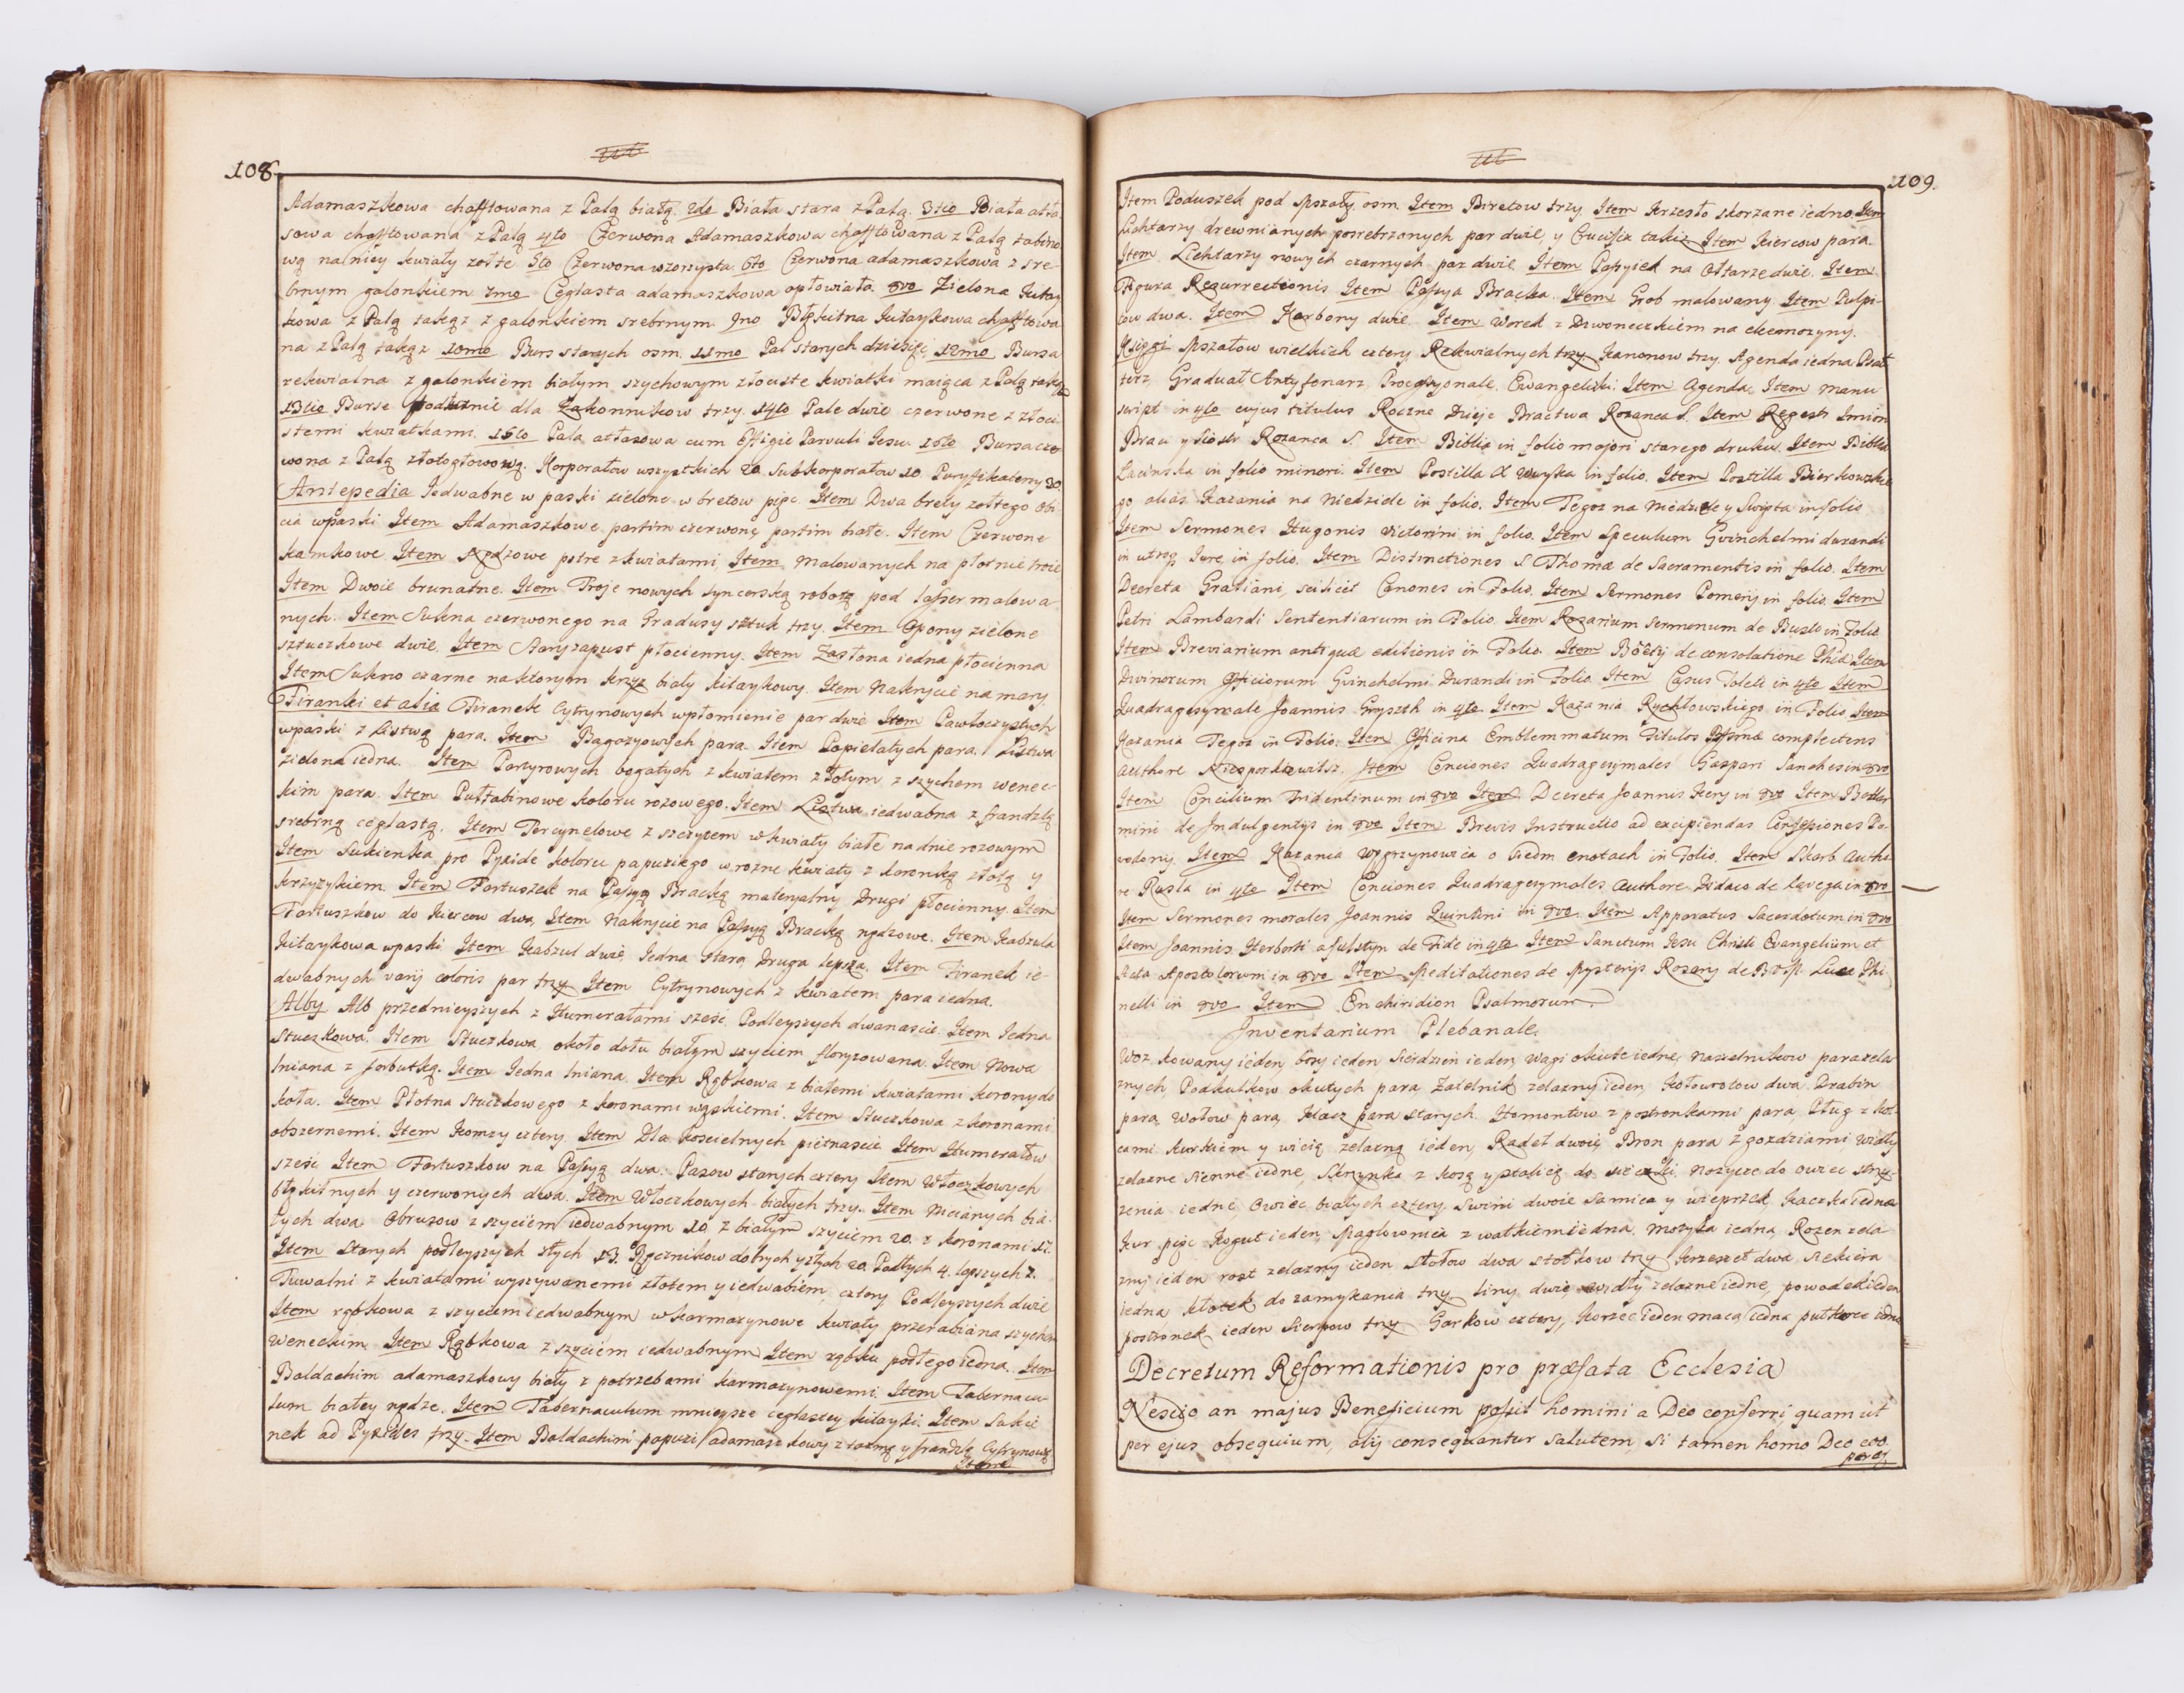 108.
Adamaszkowa chafftowana z Palą białą. 2do Biała stara z Palą. 3tio Biała atła
sowa chafftowana z Palą 4to Czerwona Adamaszkowa chafftowana z Palą tabino
wą na niey kwiaty zołte 5to Czerwona wzorzysta. 6to Czerwona adamaszkowa z sre-
brnym galonkiem 7mo Ceglasta adamaszkowa opłowiała. 8vo Zielona Kitay
kowa z Palą takąz z galonkiem srebrnym. 9no Błękitna Kitaykowa chafftowa
na z Palą takąz 10mo Burs starych osm. 11mo Pal starych dziesięć 12mo Bursa
rekwialna z galonkiem białym szychowym złociste kwiatki maiąca z Palą taką
13tio Burse podłużnie dla Zakonnikow trzy. 14to Pale dwie czerwone z złoci
stemi kwiatkami. 15to Pala atłasowa cum Effigie Parvuli Jesu. 16to Bursa czer
wona z Palą złotogłowową. Korporałow wszystkich 20. Subkorporałow 10 Puryfikaterzy 30
Antepedia Jedwabne w paski zielone w bretow pięc. Item Dwa brety zołtego Obi
cia w paski Item Adamaszkowe partim czerwone partim białe. Item Czerwone
kamkowe. Item rządzowe pstre z kwiatami, Item Malowanych na płotnie troie
Item Dwoie brunatne. Item Troje nowych syncerską robotą pod lasser malowa-
nych. Item Sukna czerwonego na Gradusy sztuk trzy. Item Opony zielone
sztuczkowe dwie, Item Stary zapust płocienny. Item Zasłona iedna płocienna
Item Sukno czarne na ktorym krzyz biały kitaykowy. Item Nakrycie na mary.
Firanki et alia Firanek Cytrynowych w płomienie par dwie Item Pawłoczystych
w paski z Listwą para. Item Bagazyowych para. Item Popielatych para. Listwa
zielona iedna. Item Partyrowych bogatych z kwiatem złotym z szychem wenec-
kim para. Item Pułtabinowe koloru rozowego. Item Listwa iedwabna z frandzlą
srebrną ceglastą. Item Tercynelowe z szczyrem w kwiaty białe na dnie rozowym
Item Sukienka pro Pyxide koloru papuziego w rozne kwiaty z koronką złotą y
krzyzykiem. Item Fartuszek na Passyą Bracką materyalny Drugi płocienny. Item
Fartuszkow do Kiercow dwa, Item Nakrycie na Passyą Bracką rządzowe. Item Kabzula
Kitaykowa w paski Item Kabzul dwie, Jedna stara Druga lepsza. Item Firanek ie-
dwabnych varij coloris par trzy Item Cytrynowych z kwiatem para iedna.
Alby Alb przednieyszych z Humerałami szesć, Podleyszych dwanascie. Item Jedna
Stuczkowa. Item Stuczkowa około dołu białym szyciem floryzowana. Item Nowa
lniana z forbutką. Item Jedna lniana. Item Rąbkowa z białemi kwiatami korony do
koła. Item Płotna stuczkowego z koronami wąskiemi. Item Stuczkowa z koronami
obszernemi. Item Komzy cztery. Item Dla Koscielnych piętnascie Item Humerałow
szesc Item Fartuszkow na Passyą dwa. Pasow starych cztery Item Włoczkowych
błękitnych y czerwonych dwa. Item Włoczkowych białych trzy. Item Nicianych bia-
łych dwa. Obrusow z szyciem iedwabnym 10. z białym szyciem 20. z koronami 12.
Item Starych podleyszych złych 13. Ręcznikow dobrych y złych 20. Podłych 4. lepszych 2.
Tuwalni z kwiatami wyszywanemi złotem y iedwabiem, cztery Podleyszych dwie
Item rąbkowa z szyciem iedwabnym w karmazynowe kwiaty przerabiana szychem
weneckim. Item Rąbkowa z szyciem iedwabnym Item rąbku podłego iedna. Item
Baldachim adamaszkowy biały z potrzebami karmazynowemi. Item Tabernacu-
lum białey rządze. Item Tabernaculum mnieysze ceglastey kitayki. Item Sukie
nek ad Pyxides trzy. Item Baldachim papuzi adamaszkowy z taśmą y frandzlą Cytrynową
Item
109.
Item Poduszek pod Mszały osm Item Biretow trzy Item Krzesło skorzane iedno Item
Lichtarzy drewnianych posrebrzanych par dwie, y Crucifix takiz Item Kiercow para.
Item Lichtarzy nowych czarnych par dwie. Item Passyiek na Ołtarze dwie. Item
Figura Rezurrectionis Item Passya Bracka. Item Grob malowany. Item Pulpi-
tow dwa. Item Karbony dwie Item Worek z Dzwoneczkiem na eleemozyny.
Księgi Mszałow wielkich cztery Rekwialnych trzy Kanonow trzy. Agenda iedna Psał
terz, Graduał Antyfonarz, Processyonale, Ewangeliczki Item Agenda, Item Manu
script in 4to cujus titulus Roczne Dzieje Bractwa Rozanca S. Item Regestr Imion
Braci y Siostr Rozanca S. Item Biblia in folio majori starego druku. Item Biblia
Lacinska in folio minori. Item Postilla X Wuyka in folio. Item Postilla Bierkowskie
go alias Kazania na Niedziele in folio. Item Tegoz na Niedziele y Swięta in folio
Item Sermones Hugonis Victorini in folio. Item Speculum Guinchelmi durandi
in utroq Jure in folio. Item Distinctiones S Thomæ de Sacramentis in folio. Item
Decreta Gratiani, scilicet Canones in Folio. Item Sermones Pomerij in folio. Item
Petri Lambardi Sententiarum in Folio Item Rozarium Sermonum de Busto in Folio
Item Breviarium antiquæ editionis in Folio. Item Boëtij de consolatione Phiæ Item
Divinorum Officiorum Guinchelmi Durandi in Folio Item Casus Toleti in 4to Item
Quadragesymale Joannis Gryszth in 4to Item Kazania Rychłowskiego in Folio Item
Kazania Tegoz in Folio. Item Officina Emblemmatum Titulos complectens
authore Item Conciones Quadragesymales Gaspari Sanches in 8vo
Item Concilium Tridentinum in 8vo Item Decreta Joannis Kery in 8vo Item Bellar
mini de Indulgentijs in 8vo Item Brevis Instructio ad excipiendas Confessiones Po-
vodonij. Item Kazania Węgrzynowicza o siedm cnotach in Folio. Item Skarb autho
re Rusła in 4to Item Conciones Quadragesymales authore Didaco de lavega in 8vo
Item Sermones morales Joannis Quintini in 8vo. Item Apparatus Sacerdotum in 8vo
Item Joannis Herborti a fulstyn de Fide in 4to Item Sanctum Jesu Christi Evangelium et
Acta Apostolorum in 8vo Item Meditationes de Mysterijs Rozary de BVM Lucæ Phi
nelli in 8vo Item Enchiridion Psalmorum.
Inventarium Plebanale.
Woz kowany ieden, bosy ieden Sierdzien ieden, wagi okute iedne, naszelnikow para zela
znych, Podkulkow okutych para, Zatelnik zelazny ieden, Kołowrotow dwa Drabin
para, Wołow para, Klacz para starych Homontow z postronkami para. Pług z kol-
cami kurkiem y wicią zelazną ieden, Radeł dwoie, Bron para z gozdziami, widły
zelazne sienne iedne, Skrzynka z kosą y stolicą do sieczki. Nozyce do owiec strzy-
zenia iedne, Owiec białych cztery, Swini dwoie Samica y wieprzek, Kaczka iedna
Kur pięc Kogut ieden, Maglownica z wałkiem iedna, Motyka iedna, Rozen zela
zny ieden rost zelazny ieden Stołow dwa stołkow trzy Krzeseł dwa, siekiera
iedna kłotek do zamykania trzy. liny dwie, widły zelazne iedne, powodek ieden
postronek ieden Sierpow trzy Garkow cztery, korzec ieden maca iedna pułkorce iedno
Decretum Reformationis pro præfata Ecclesia
Nescio an majus Beneficium possit homini a Deo conferri, quam ut
per ejus obsequium, alij consequantur salutem, si tamen homo Deo coo